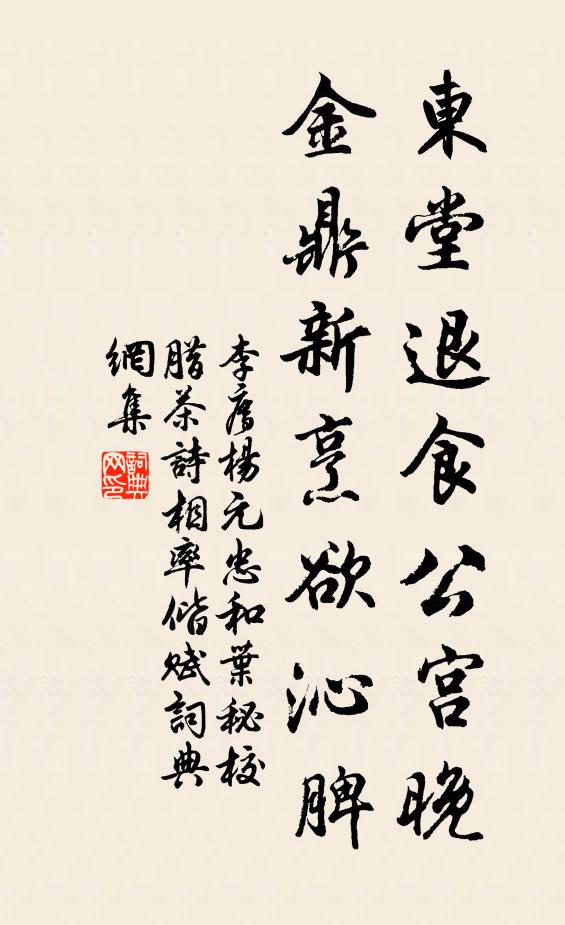 東堂退食公宮晚
金鼎新烹欲沁脾
李廌楊元忠和葉秘校
腊茶詩相率偕賦詞典
網集
詞典網印